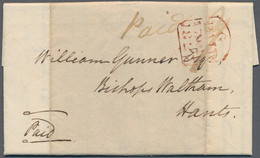 Paid
William Gunner Esq
Bishops Waltham,
Hants.
Paid